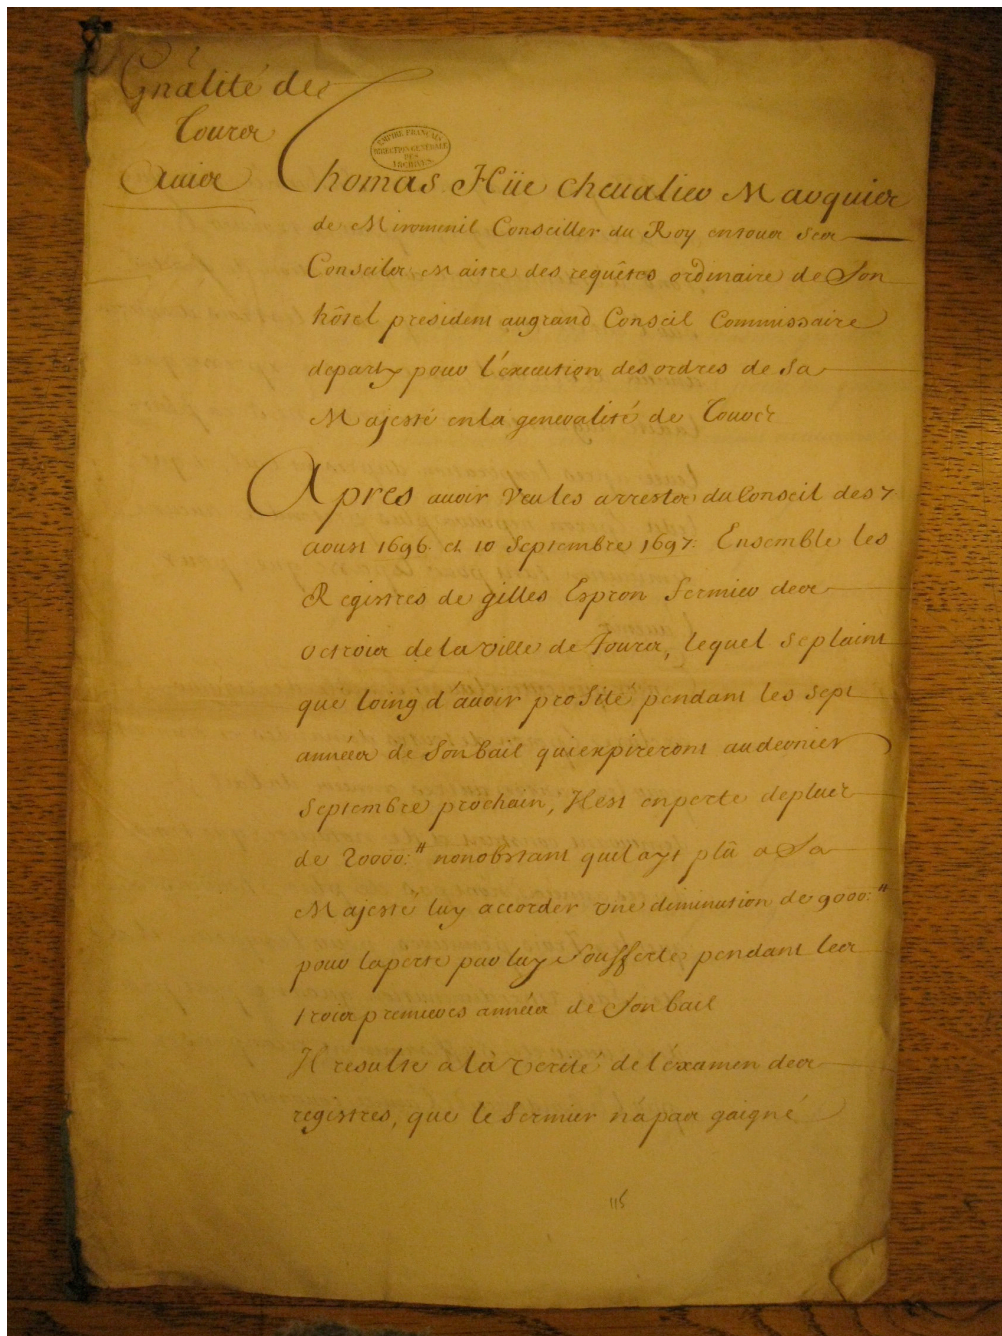 Gnãlité des
Tours
Auis
EMPIRE FRANÇAIS
DIRECTION GÉNÉRALE
DES
ARCHIVES
Thomas Hüe cheualier Marquis
de Miromenil Conseiller du Roy en tous ses
Conseils Maitre des requêtes ordinaire de son
hôtel president au grand Conseil Commissaire
departy pour l'éxecution des ordres de Sa
Majesté en la generalité de Tours
Apres auoir veu les arrestz du Conseil des 7
aoust 1696. et 10 Septembre 1697. Ensemble les
Registres de gilles Espron fermier des
octrois de la ville de Tours, lequel se plaint
que loing d'auoir profité pendant les sept
années de son bail qui expireront au dernier
Septembre prochain, Il est en perte de plus
de 20000.ᵗᵗ nonobstant quel ayt plû a Sa
Majesté luy accorder vne diminution de 9000.ᵗᵗ
pour la perte par luy soufferte pendant les
trois premieres années de son bail
Il resulte a la verité de l'éxamen des
registres, que le fermier n'a pas gaigné
115